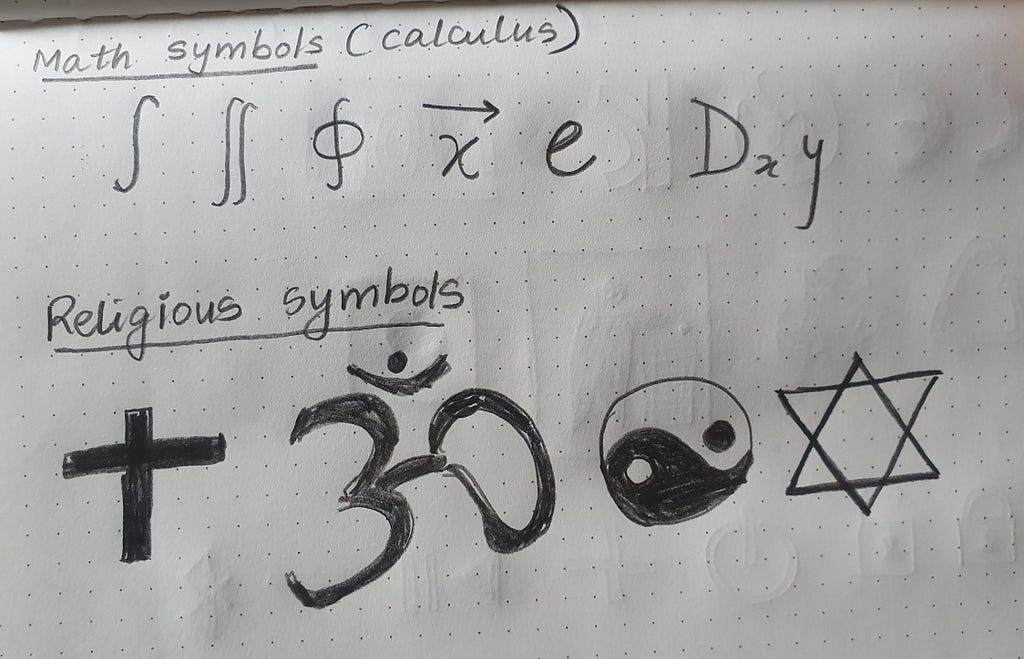 Math symbols (calculus)
∫ ∬ ∮ x⃗ e Dₓy
Religious symbols
✝ ॐ ☯ ✡